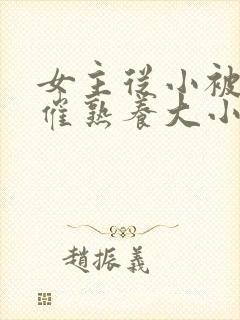 女主從小被
催熟養大小
趙振義